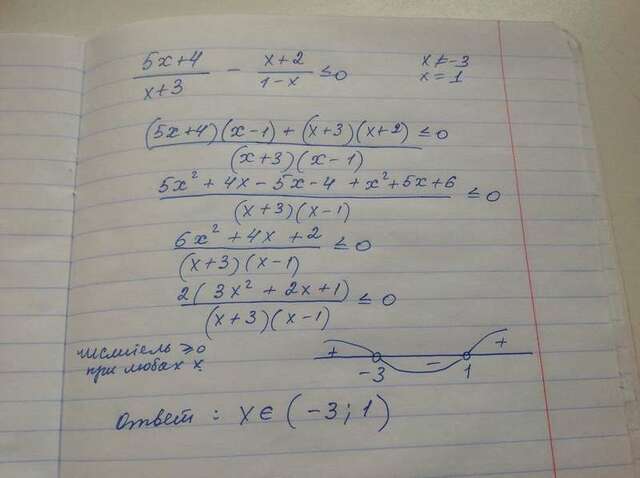 (5x+4)/(x+3) - (x+2)/(1-x) ≤0
x≠-3
x=1
((5x+4)(x-1)+(x+3)(x+2))/((x+3)(x-1)) ≤0
(5x²+4x-5x-4+x²+5x+6)/((x+3)(x-1)) ≤0
(6x²+4x+2)/((x+3)(x-1)) ≤0
2(3x²+2x+1)/((x+3)(x-1)) ≤0
числитель ≥0
при любых x
+ - +
-3 1
Ответ: x∈(-3;1)